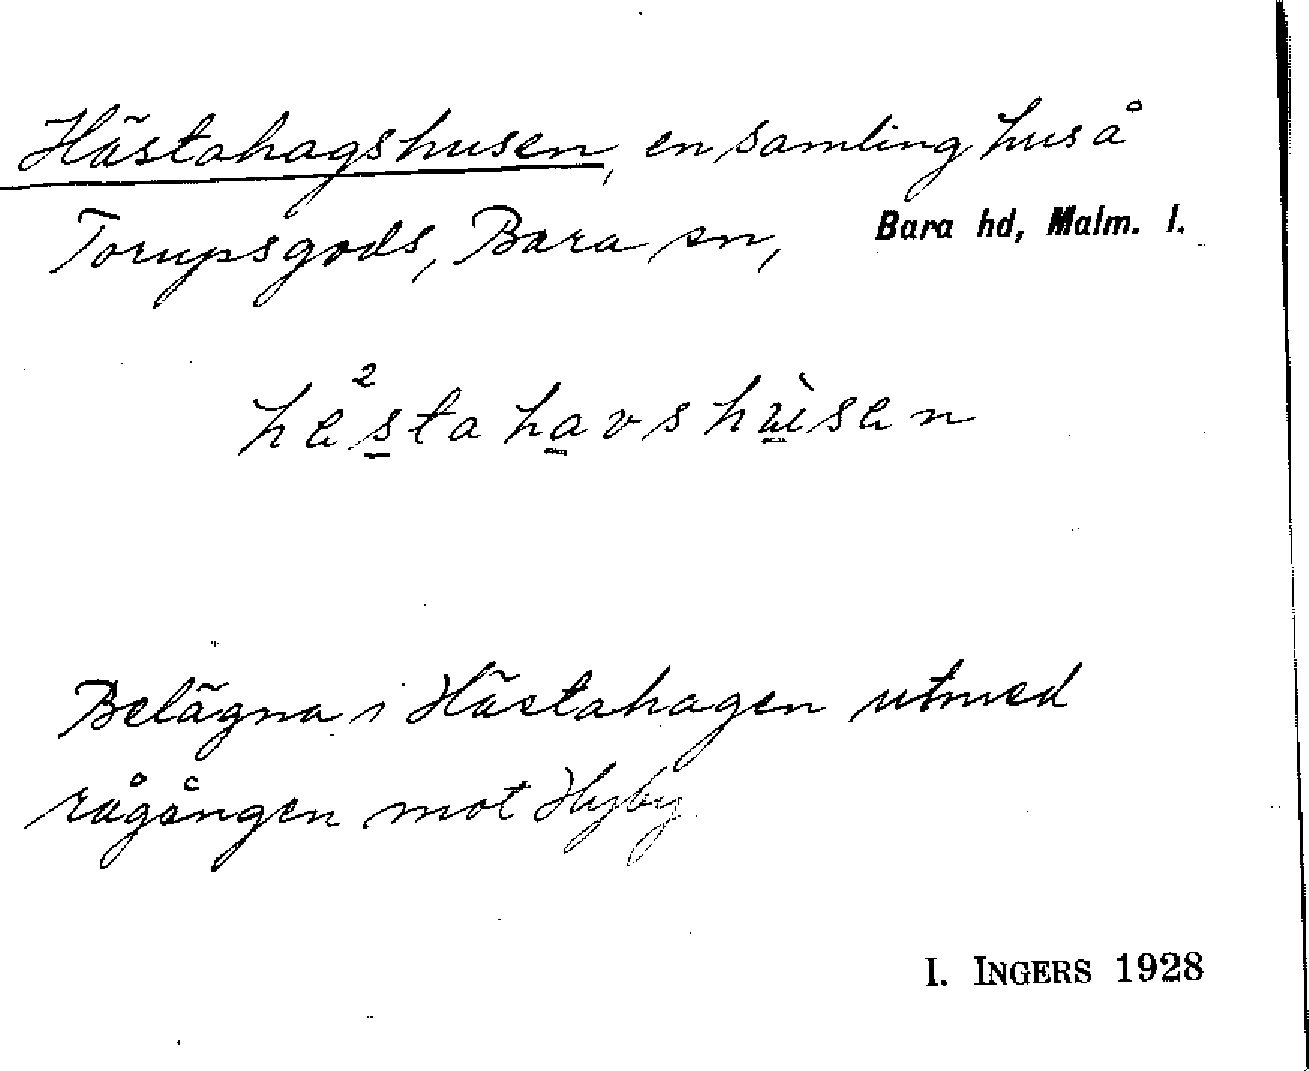 Hästahagshusen, en samling hus å
Torupsgods, Bara sn, Bara hd, Malm. l.
hä²stahavshùsen
Belägna i Hästahagen utmed
rågången mot Hyby
I. INGERS 1928